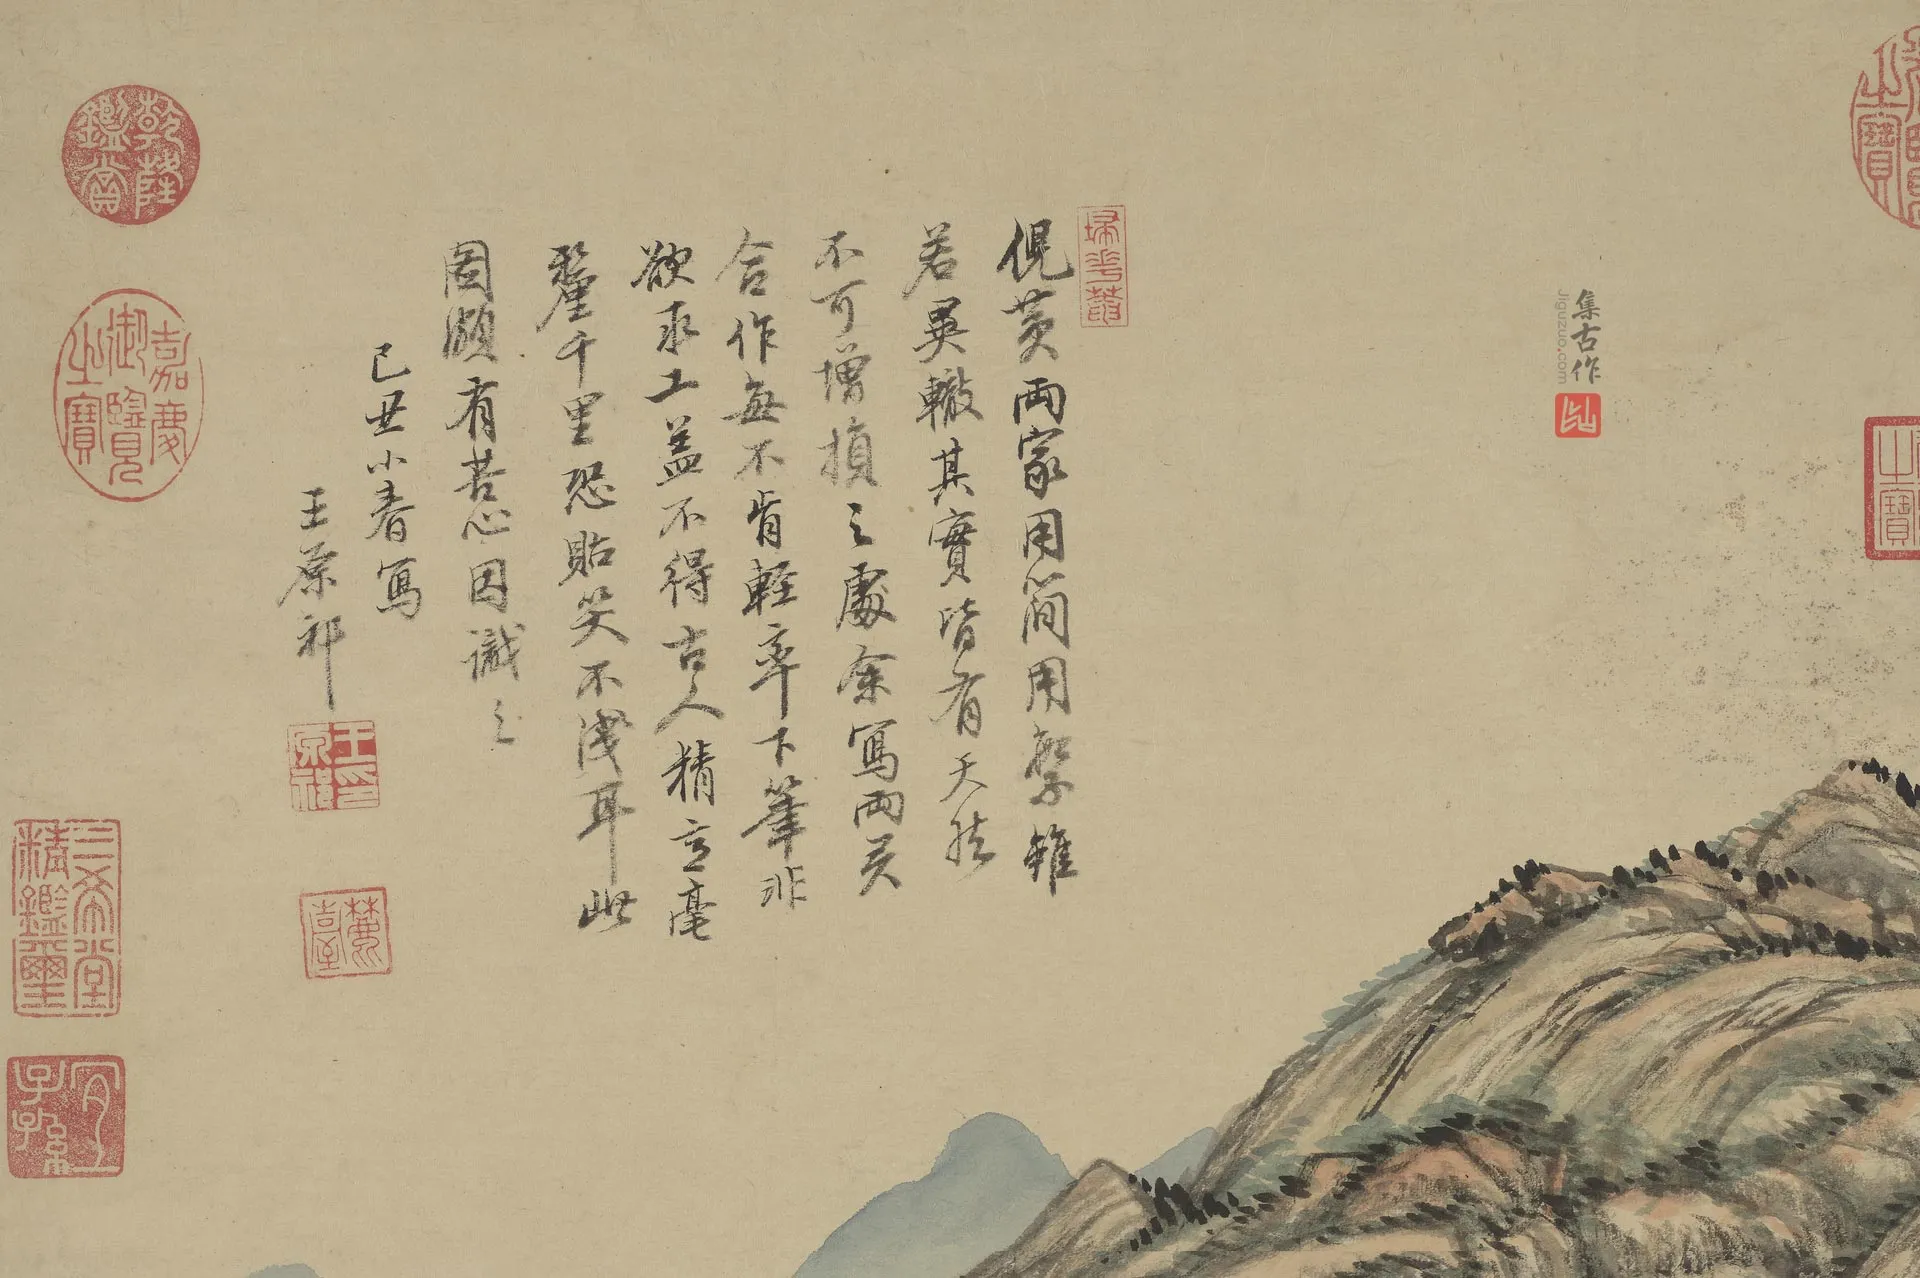 掃花菴
倪黃兩家用簡用繁雖
若異轍其實皆有天然
不可增損之處余寫兩
合作每不肯輕率下筆非
欲求工盖不得古人精意毫
釐千里恐貽笑不淺耳此
圖頗有苦心因識之
己丑小春寫
王原祁
王原祁印
麓臺
乾隆鑑賞
嘉慶御覽之寶
三希堂精鑑璽
宜子孫
集古作
Jiguzuo.com